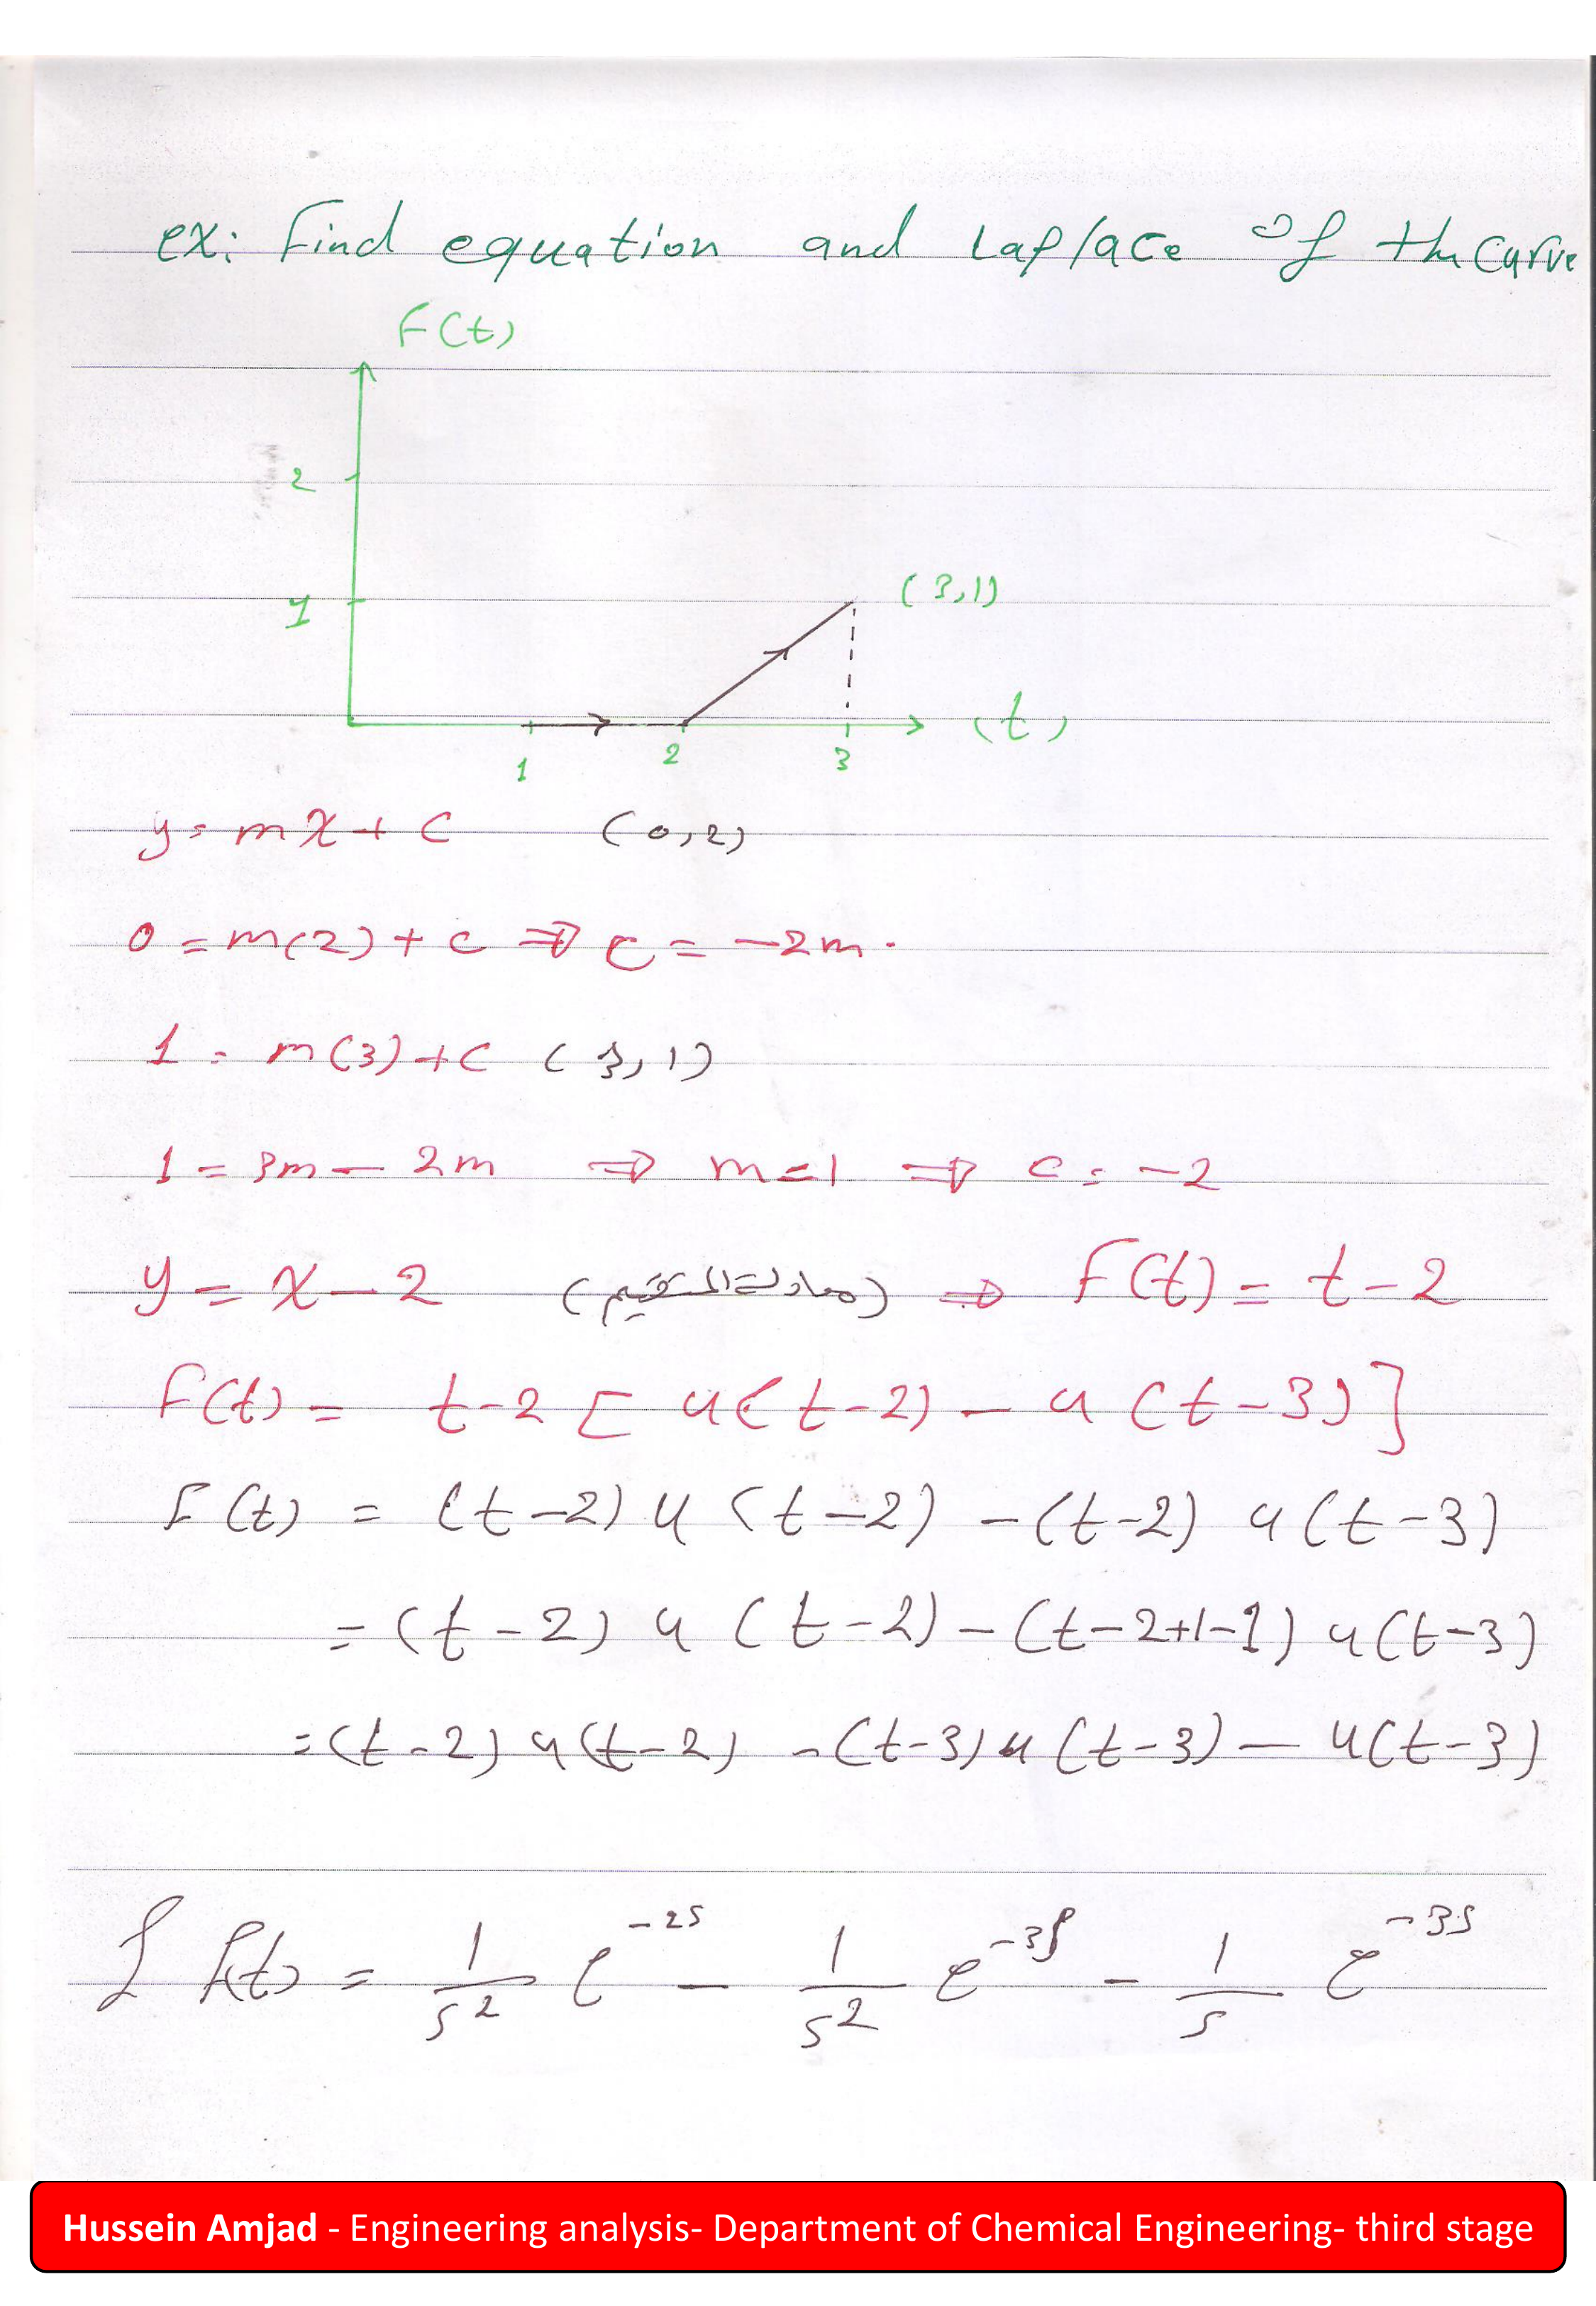 ex: Find equation and Laplace of the curve
F(t)
2
1
(3,1)
1 2 3 (t)
y = mx + c (0,2)
0 = m(2) + c ⇒ c = -2m.
1 = m(3) + c (3,1)
1 = 3m - 2m ⇒ m = 1 ⇒ c = -2
y = x - 2 (معادلة المستقيم) ⇒ F(t) = t - 2
F(t) = t-2 [ u(t-2) - u(t-3) ]
F(t) = (t-2) u(t-2) - (t-2) u(t-3)
= (t-2) u(t-2) - (t-2+1-1) u(t-3)
= (t-2) u(t-2) - (t-3) u(t-3) - u(t-3)
ℒ f(t) = 1/s² e^-2s - 1/s² e^-3s - 1/s e^-3s
Hussein Amjad - Engineering analysis- Department of Chemical Engineering- third stage